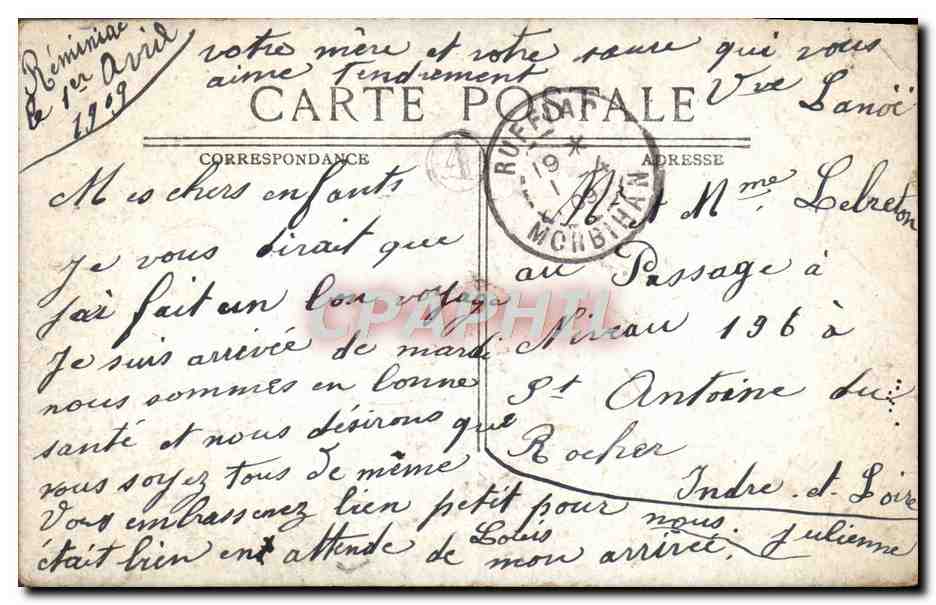 Réminiac
le 1er Avril
1909
votre mère et votre sœure qui vous
aime tendrement Vve Lanoë
CARTE POSTALE
CORRESPONDANCE
ADRESSE
4
RUFFIAC
19
1
MORBIHAN
Mes chers enfants
Je vous dirait que
j'ai fait un bon voyage
Je suis arrivée de mardi
nous sommes en bonne
santé et nous désirons que
vous soyez tous de même
Vous embrasserez bien petit Loüis pour nous. Julienne
était bien en attende de mon arrivée.
M et Mme Lebreton
au Passage à
Niveau 196 à
St Antoine du
Rocher
Indre-et-Loire
CPAPHIL